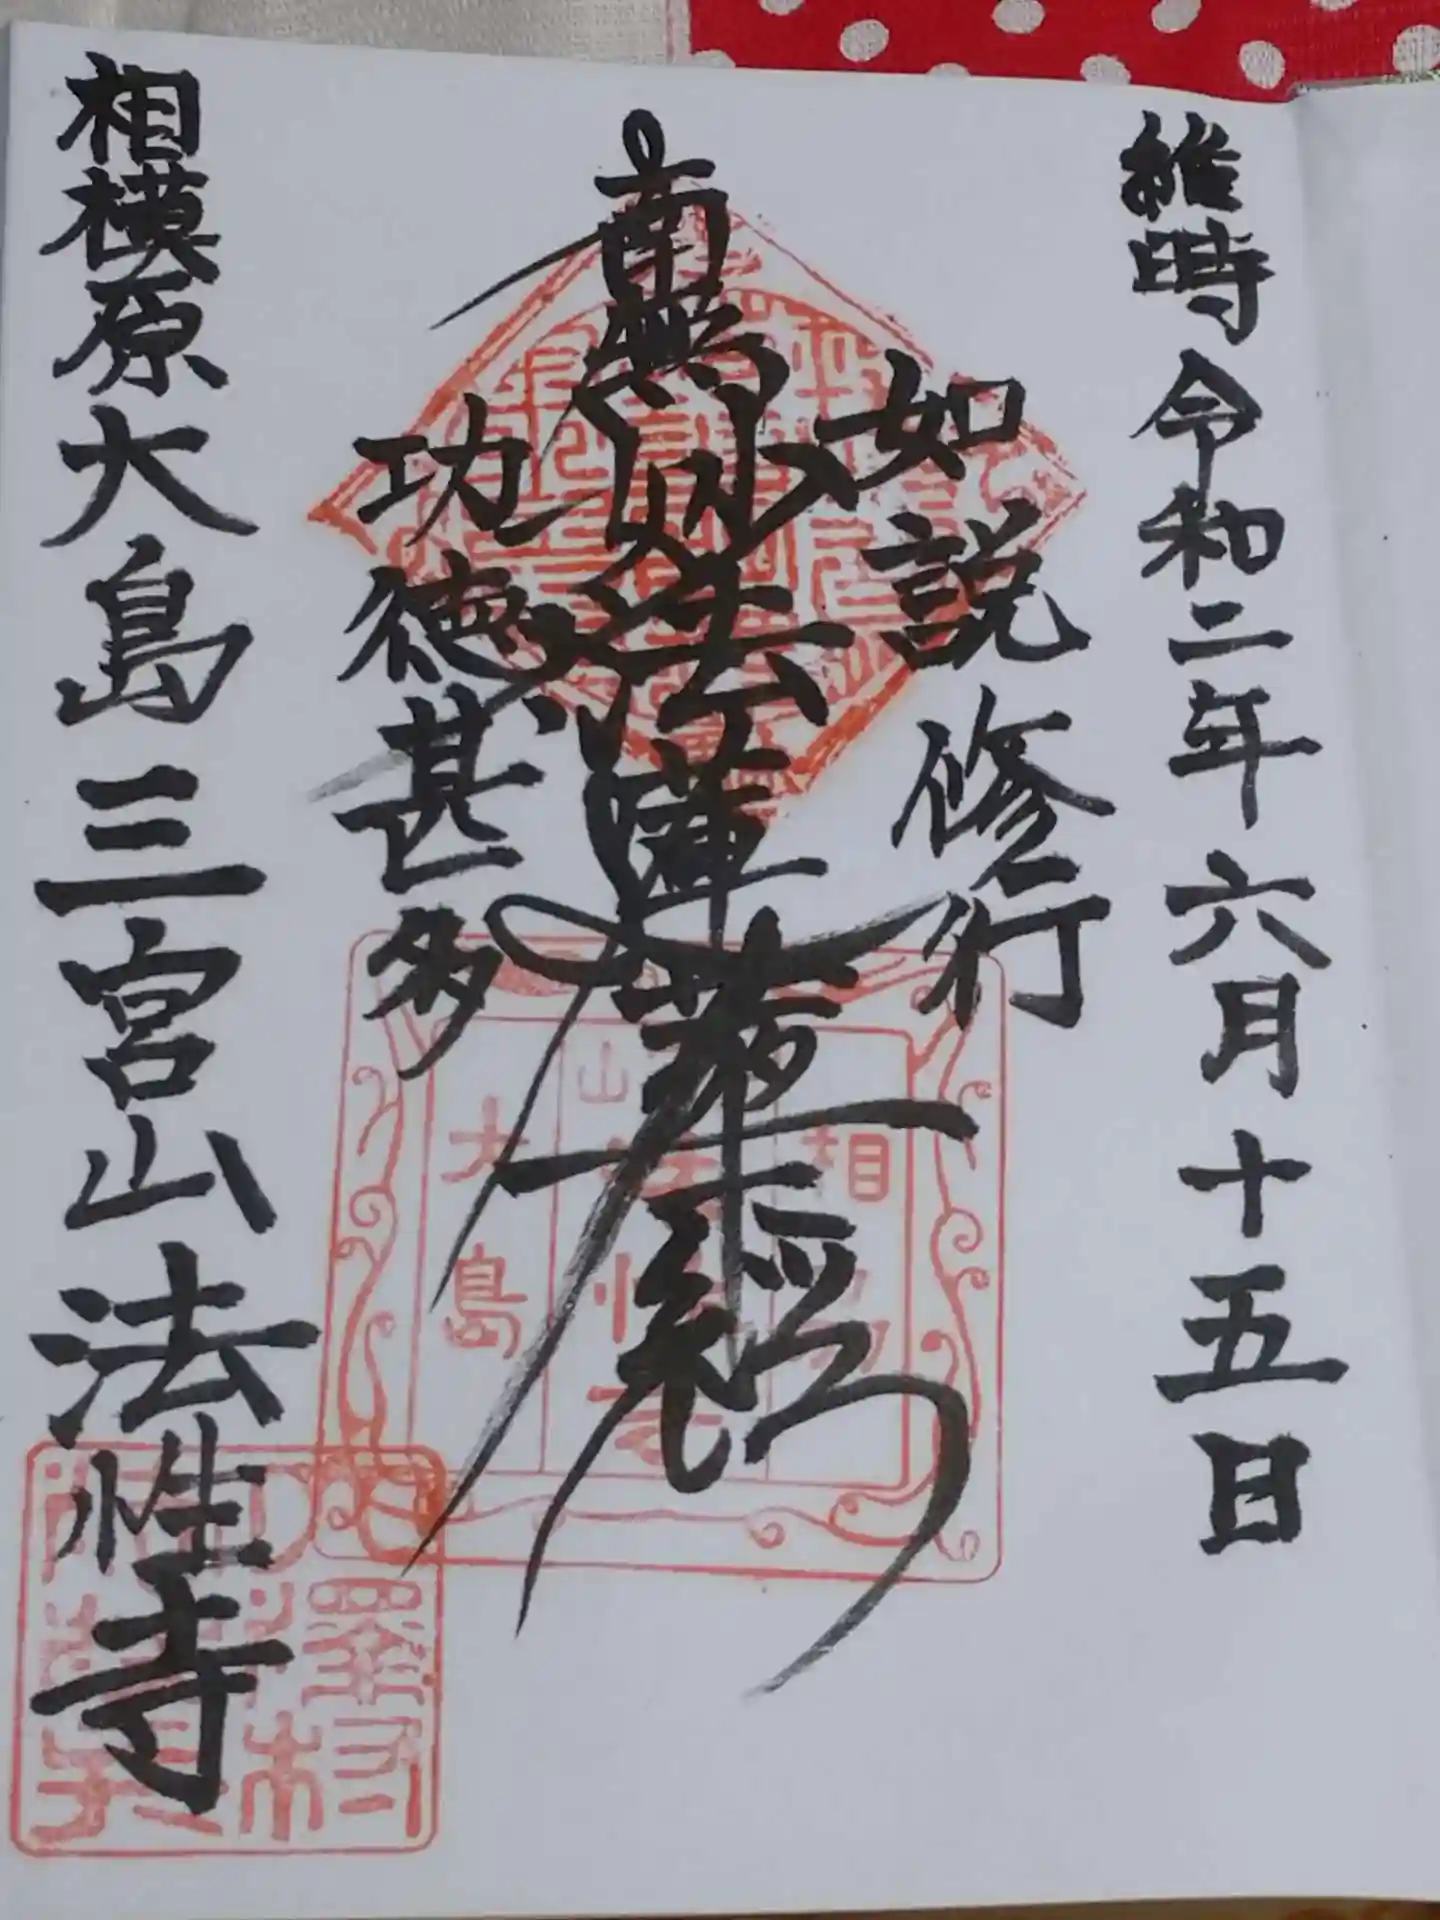 維時令和二年六月十五日
如説修行
南無妙法蓮華経
功徳甚多
相模原大島三宮山法性寺
相
山
大島
澤村